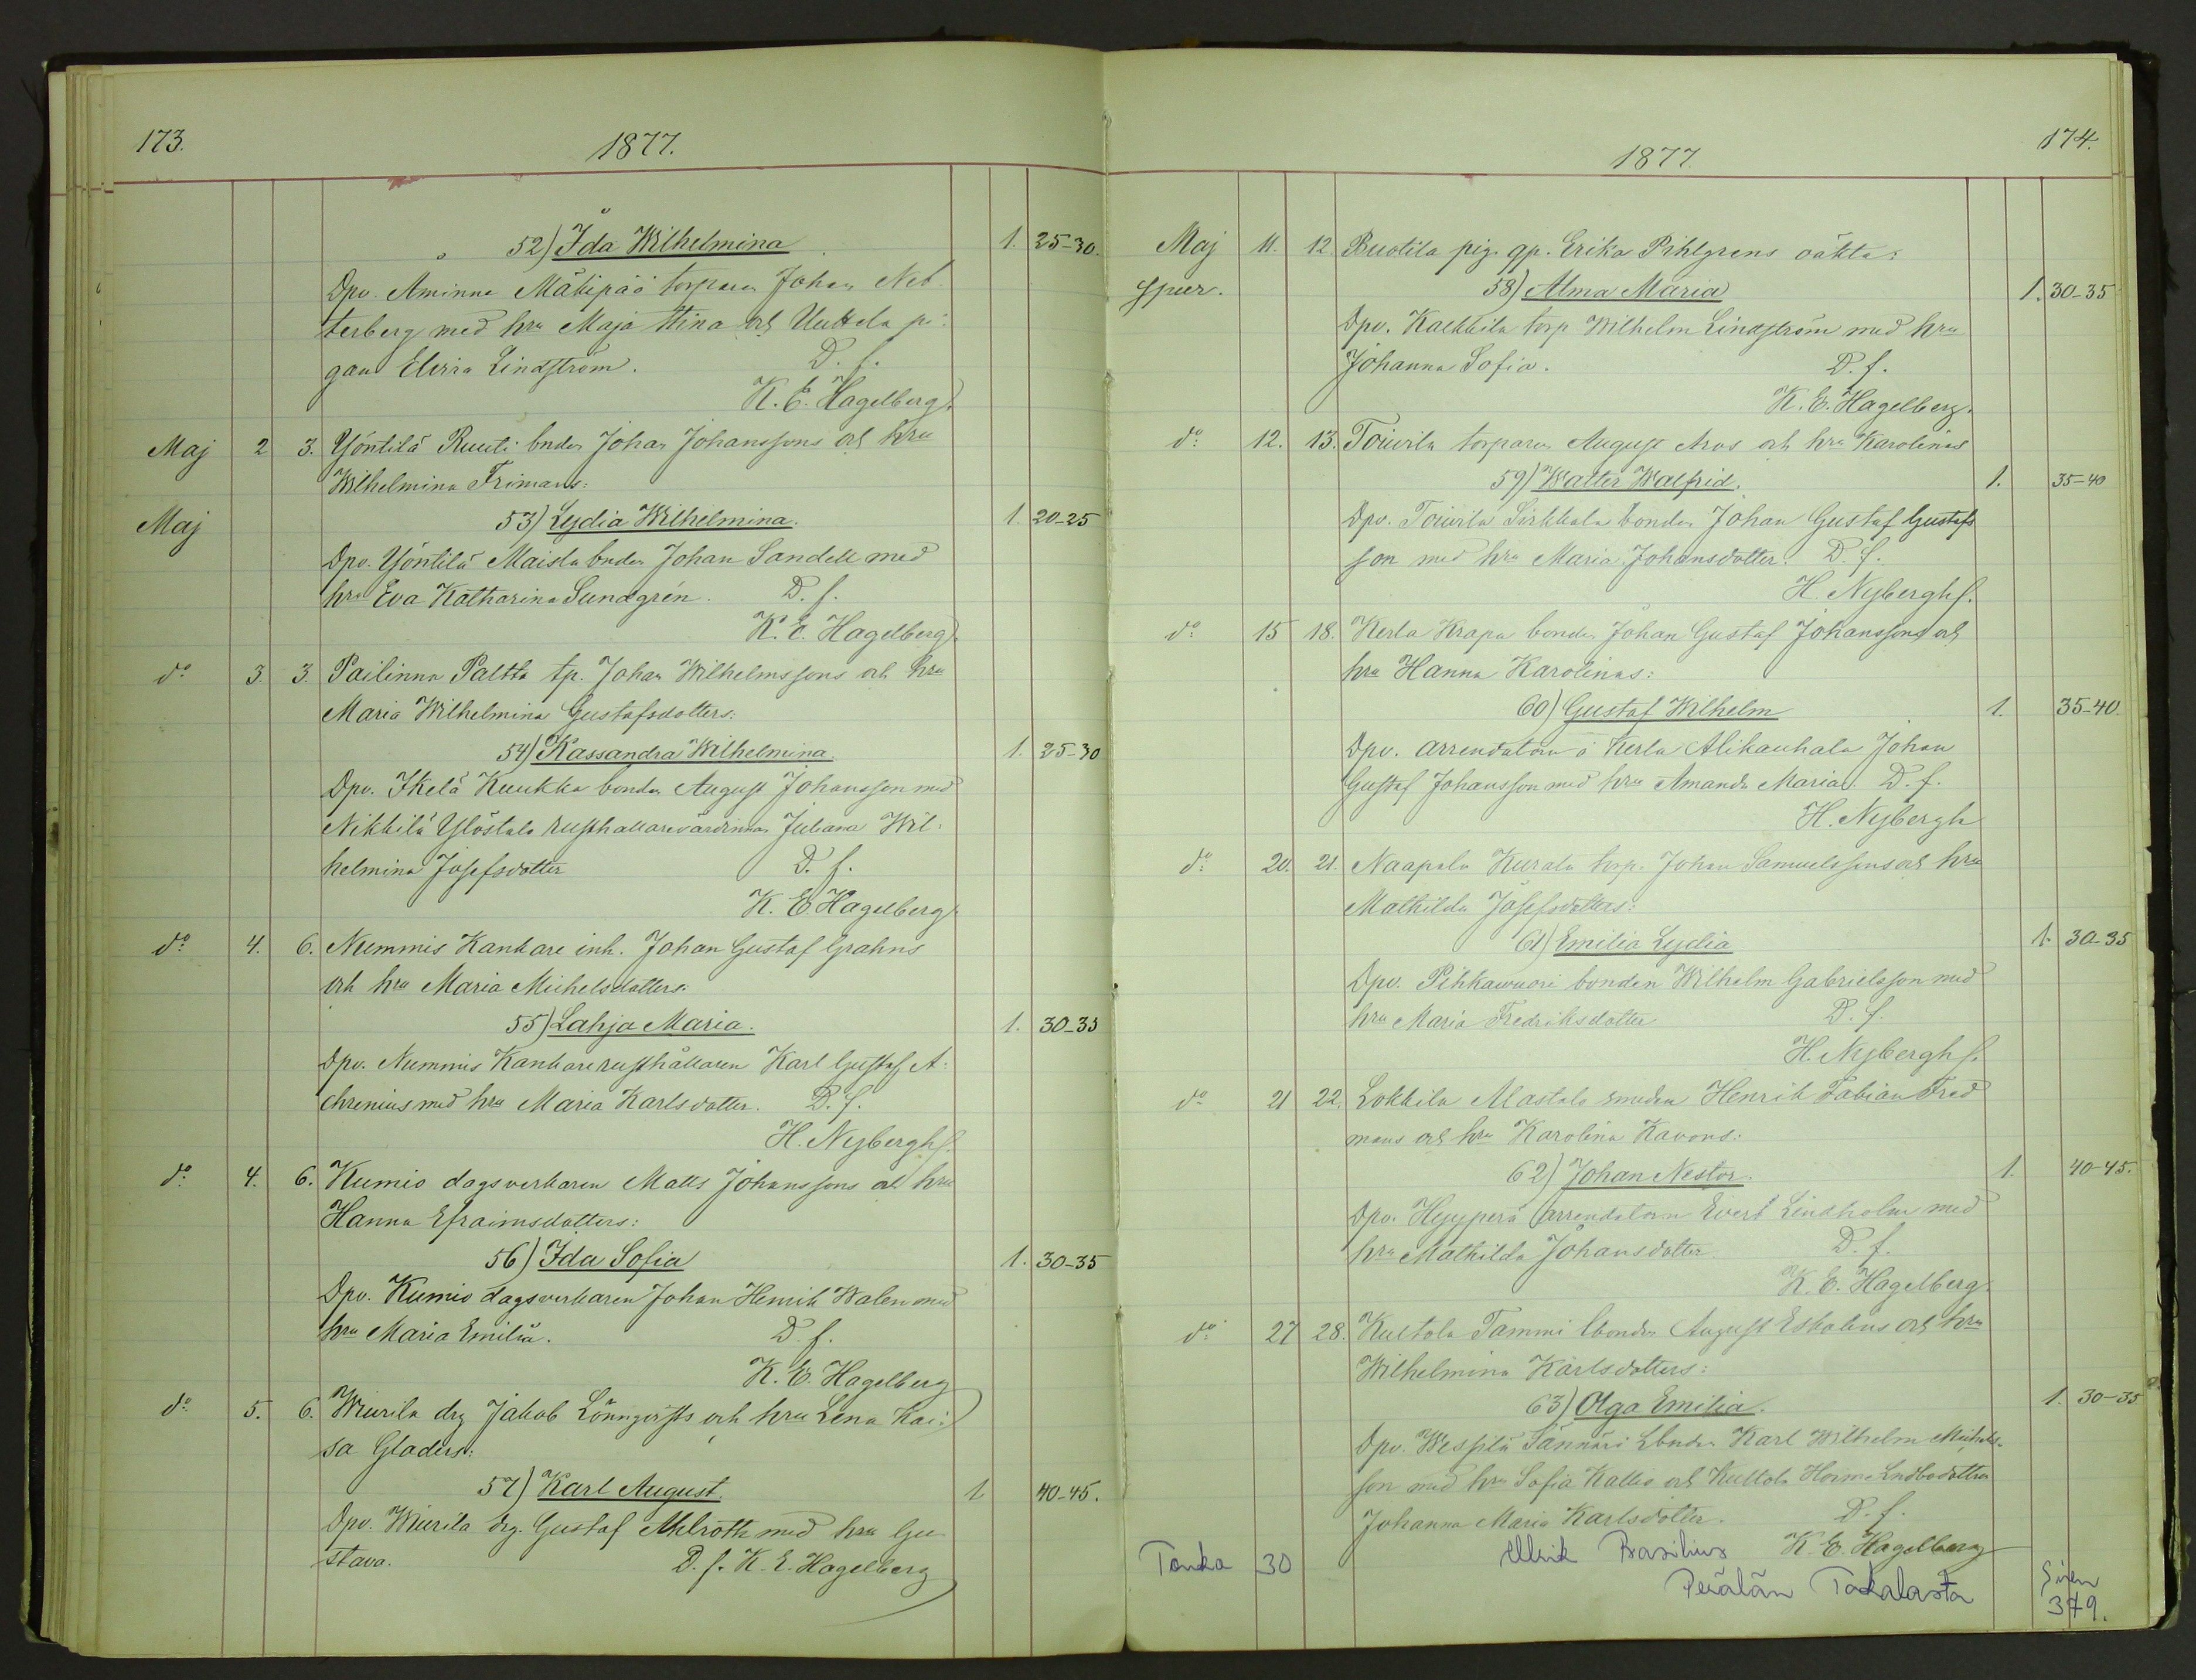 173.
1877.
52) Ida Wilhelmina 1. 25-30.
Dpv. Aminne Mäkipää torparen Johan Net
terberg med hru Maja Stina och Uutela pi:
gan Elvira Lindström. D. f.
K. E. Hagelberg.
Maj 2 3. Yöntilä Ruuti bnden Johan Johanssons och hru
Wilhelmina Frimans:
Maj 53) Lydia Wilhelmina. 1. 20-25
Dpv. Yöntilä Maisla bnden Johan Sandell med
hru Eva Katharina Sundgrén. D. f.
K. E. Hagelberg
do 3. 3. Pailinna Paltta tp. Johan Wilhelmssons och hru
Maria Wilhelmina Gustafsdotters:
54) Kassandra Wilhelmina. 1. 25-30
Dpv. Ikelä Kuukka bonden August Johansson med
Nikkilä Ylöstalo rusthållarevärdinnan Juliana Wil:
helmina Josefsdotter D. f.
K. E. Hagelberg.
do 4. 6. Nummis Kankare inh. Johan Gustaf Grahns
och hru Maria Michelsdotters:
55) Lahja Maria. 1. 30-35
Dpv. Nummis Kankare rusthållaren Karl Gustaf A:
chrenius med hru Maria Karlsdotter. D. f.
H. Nybergh f.
do 4. 6. Kumio dagsverkaren Matts Johanssons och hru
Hanna Efraimsdotters:
56) Ida Sofia 1. 30-35
Dpv. Kumio dagsverkaren Johan Henrik Walen med
hru Maria Emilia. D. f.
K. E. Hagelberg
do 5. 6. Wiurila drg Jakob Lönnqvists och hru Lena Kai:
sa Gladers:
57) Karl August. 1 40-45.
Dpv. Wiurila drg. Gustaf Ahlroth med hru Gu
stava. D. f. K. E. Hagelberg
174.
1877.
Maj 11. 12 Ruotila pig. qp. Erika Pihlgrens oäkta:
spur. 58) Alma Maria 1. 30-35
Dpv. Kaukkila torp Wilhelm Lindström med hru
Johanna Sofia. D. f.
K. E. Hagelberg.
do 12. 13. Toivila torparen August Aros och hru Karolinas
59) Walter Walfrid. 1. 35-40
Dpv. Toivila Sirkkala bonden Johan Gustaf Gustafs
son med hru Maria Johansdotter. D. f.
H. Nybergh f.
do 15 18. Kerla Krapu bonden Johan Gustaf Johanssons och
hru Hanna Karolinas:
60) Gustaf Wilhelm 1. 35-40.
Dpv. arrendatorn å Kerla Alikauhala Johan
Gustaf Johansson med hru Amanda Maria. D. f.
H. Nybergh
do 20. 21. Naapala Kurala torp. Johan Samuelssons och hru
Mathilda Josefsdotters:
61) Emilia Lydia 1. 30-35
Dpv. Pihkawuori bonden Wilhelm Gabrielsson med
hru Maria Fredriksdotter D. f.
H. Nybergh f.
do 21 22. Lokkila Mastalo smeden Henrik Fabian Fred
mans och hru Karolina Kavons:
62) Johan Nestor. 1. 40-45.
Dpv. Hyyperä arrendatorn Evert Lindholm med
hru Mathilda Johansdotter. D. f.
K. E. Hagelberg.
do 27 28. Kultola Tammi lbonden August Eskolins och hru
Wilhelmina Karlsdotters:
63) Olga Emilia. 1. 30-35
Dpv. Wessilä Sännäri Lbnden Karl Wilhelm Michels-
son med hru Sofia Kallio och Kultola Hoima Lndbodottren
Johanna Maria Karlsdotter. D. f.
K. E. Hagelberg
Touko 30 Ulrik Basilius
Perälän Takalasta
Sivu
379.